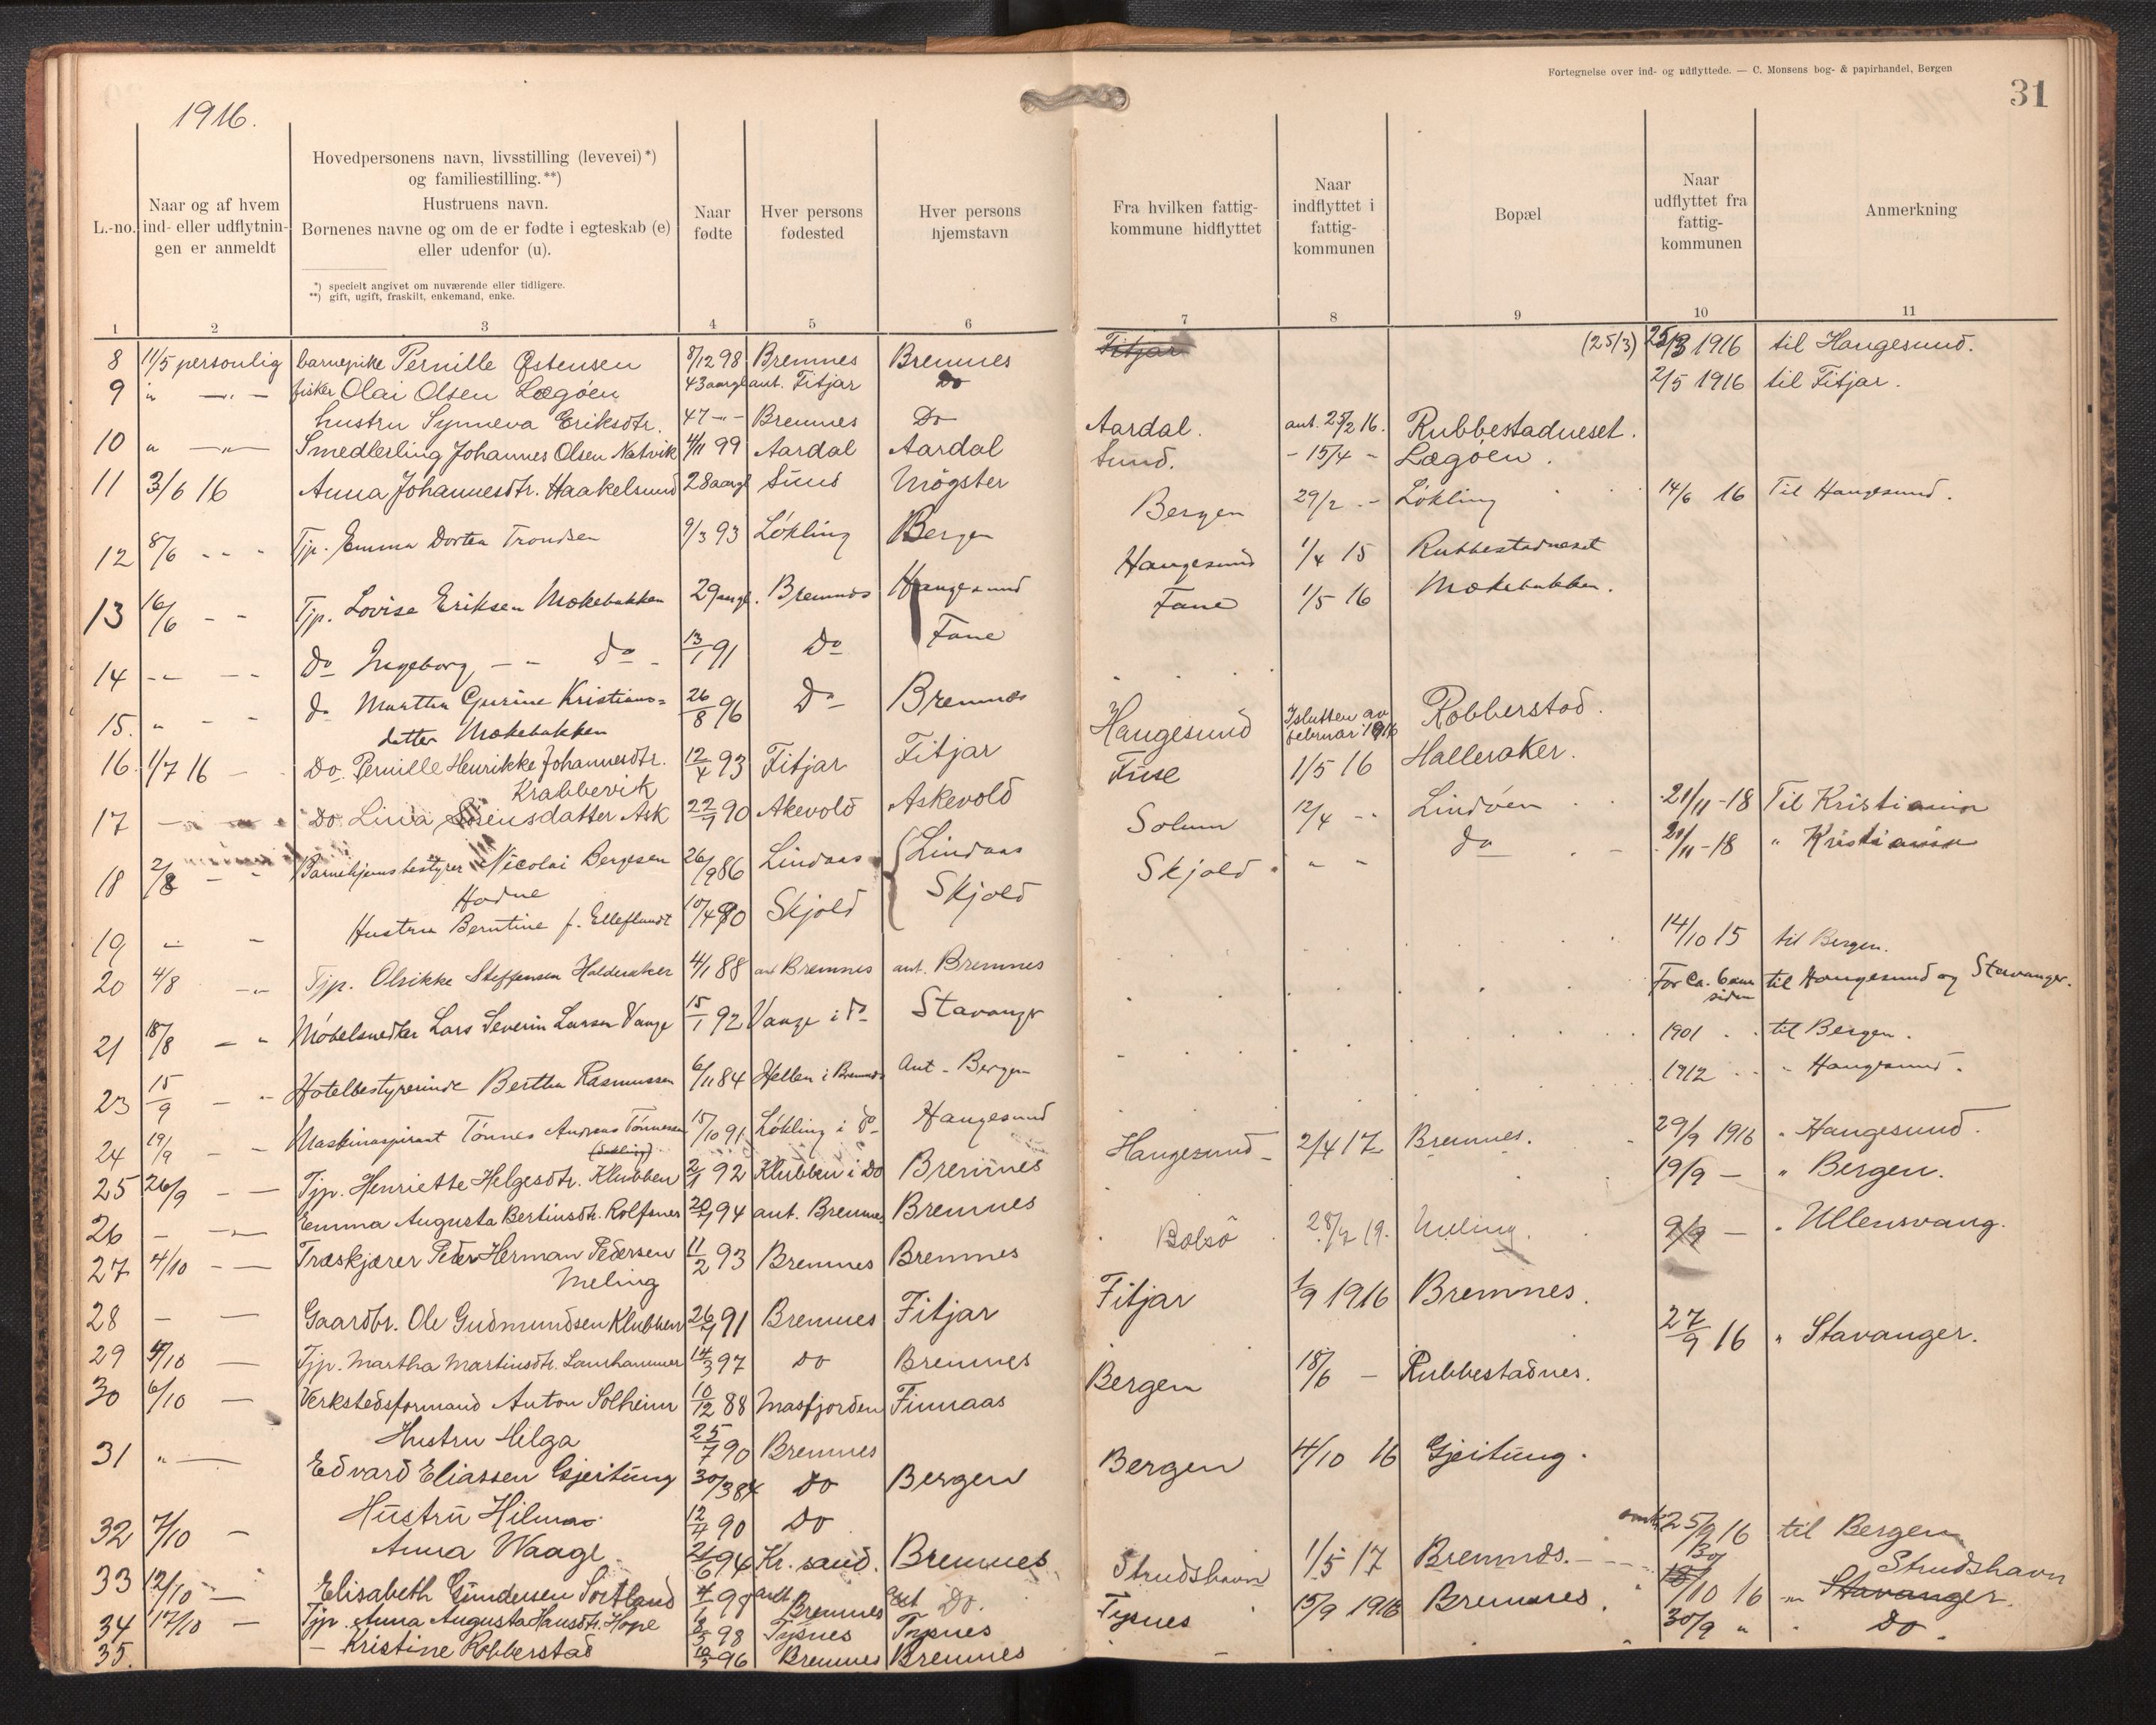 Fortegnelse over ind- og udflyttede. — C. Monsens bog- & papirhandel, Bergen
31
1916.
L.-no.
Naar og af hvem ind- eller udflytningen er anmeldt
Hovedpersonens navn, livsstilling (levevei)*) og familiestilling.**)
Hustruens navn.
Børnenes navne og om de er fødte i egteskab (e) eller udenfor (u).
*) specielt angivet om nuværende eller tidligere.
**) gift, ugift, fraskilt, enkemand, enke.
Naar fødte
Hver persons fødested
Hver persons hjemstavn
Fra hvilken fattigkommune hidflyttet
Naar indflyttet i fattigkommunen
Bopæl
Naar udflyttet fra fattigkommunen
Anmerkning
1 2 3 4 5 6 7 8 9 10 11
8 11/5 personlig barnepike Pernille Østensen 8/12 98 Bremnes Bremnes
9 " —"— fisker Olai Olsen Lægøen 43 aargl ant. Fitjar Do
hustru Synneva Eriksdtr. 47 -"- Bremnes Do
10 " —"— Smedlerling Johannes Olsen Natvik 4/11 99 Aardal Aardal
11 3/6 16 Anna Johannesdtr. Haakelsund 28 aargl Sund Møgster
12 8/6 - - - Tjp. Emma Dortea Trondsen 9/3 93 Løkling Bergen
13 16/6 - - Tjp. Lovise Eriksen Mækebakken 29 aargl. Bremnes Haugesund
14 -- -- Do Ingeborg - - Do - 13/1 91 Do Fane
15. " - - do Martha Gurine Kristians=
datter Mækebakken 26/8 96 Do Bremnes
16. 1/7 16 - Do. Pernille Henrikke Johannesdtr.
Krabbevik 12/4 93 Fitjar Fitjar
17 — Do. Lina Sirensdatter Ask 22/7 90 Akevold Askevold
18 2/8 - - Barnehjemsbestyrer Nicolai Bergesen
Hodne 26/9 86 Lindaas Lindaas
19 " - Hustru Berntine f. Elleflaadt 10/4 90 Skjold Skjold
20 4/8 -"- Tjp. Olrikke Steffensen Halderaker 4/1 88 ant Bremnes ant. Bremnes
21 18/8 - " Møbelsnedker Lars Severin Larsen Vange 15/1 92 Vange i Do Stavanger
23 15/9 - " Hotelbestyrerinde Bertha Rasmussen 6/11 84 Hellen i Bremnes Ant. Bergen
24 19/9 - - Maskinaspirant Tønnes Andreas Tønnesen
15/10 91 Løkling i Do Haugesund
25 26/9 - - Tjp. Henriette Helgesdtr. Klubben 2/1 92 Klubben i Do Bremnes
26 - -"- Emma Augusta Bertinsdtr. Rolfsnes 94 ant. Bremnes Bremnes
27 4/10 - - Træskjærer Peder Herman Pedersen
Meling 11/2 93 Bremnes Bremnes
28 - - Gaardbr. Ole Gudmundsen Klubben 91 Bremnes Fitjar
29 5/10 - Tjp. Martha Martinsdtr. Lamhammer 14/3 97 Do Bremnes
30 6/10 - Verkstedsformand Anton Solheim 10/12 88 Masfjorden Finnaas
Hustru Helga 25/7 90 Bremnes
31 " - Edvard Eliassen Gjeitung 30/3 84 Do Bergen
Hustru Hilma 90 Do
32 7/10 - Anna Waage 94 Kr. sand. Bremnes
33 12/10 - Elisabeth Gundersen Sortland 98 antl. Bremnes ant Do.
34 17/10 - Tjp. Anna Augusta Hansdtr. Hope 98 Tysnes Tysnes
35. - Kristine Robberstad 96 Bremnes Bremnes
Fitjar (25/3) 25/3 1916 til Haugesund.
2/5 1916 til Fitjar.
Aardal. ant. 25/2 16. Rubbestadneset.
Sund. - 15/4 - Lægøen.
Bergen 29/2 -- Løkling 14/6 16 Til Haugesund.
Haugesund 1/4 15 Rubbestadneset
Fane 1/5 16 Mækebakken.
Haugesund I slutten av februar 1916 Robberstad.
Fuse 1/5 16 Halleraker.
Solum 12/4 -- Lindøen 21/11-18 Til Kristiania
Skjold " - do 21/11-18 " Kristiania
14/10 15 til Bergen.
For ca. 6 aar siden til Haugesund og Stavanger.
1901 til Bergen.
1912 " Haugesund.
Haugesund - 2/4 17 Bremnes. 29/9 1916 " Haugesund.
19/9 - " Bergen.
Bolsø 28/9 19. Meling. 9/9 - " Ullensvang.
Fitjar 1/9 1916 Bremnes.
27/9 16 " Stavanger.
Bergen 18/6 - Rubbestadnes.
Bergen 4/10 16 Gjeitung.
omkr 25/9 16 til Bergen
Strudshavn 1/5 17 Bremnes. 10/10 16 -"- Stavanger. Strudshavn
Tysnes 15/9 1916 Bremnes. 30/9 " " Do.